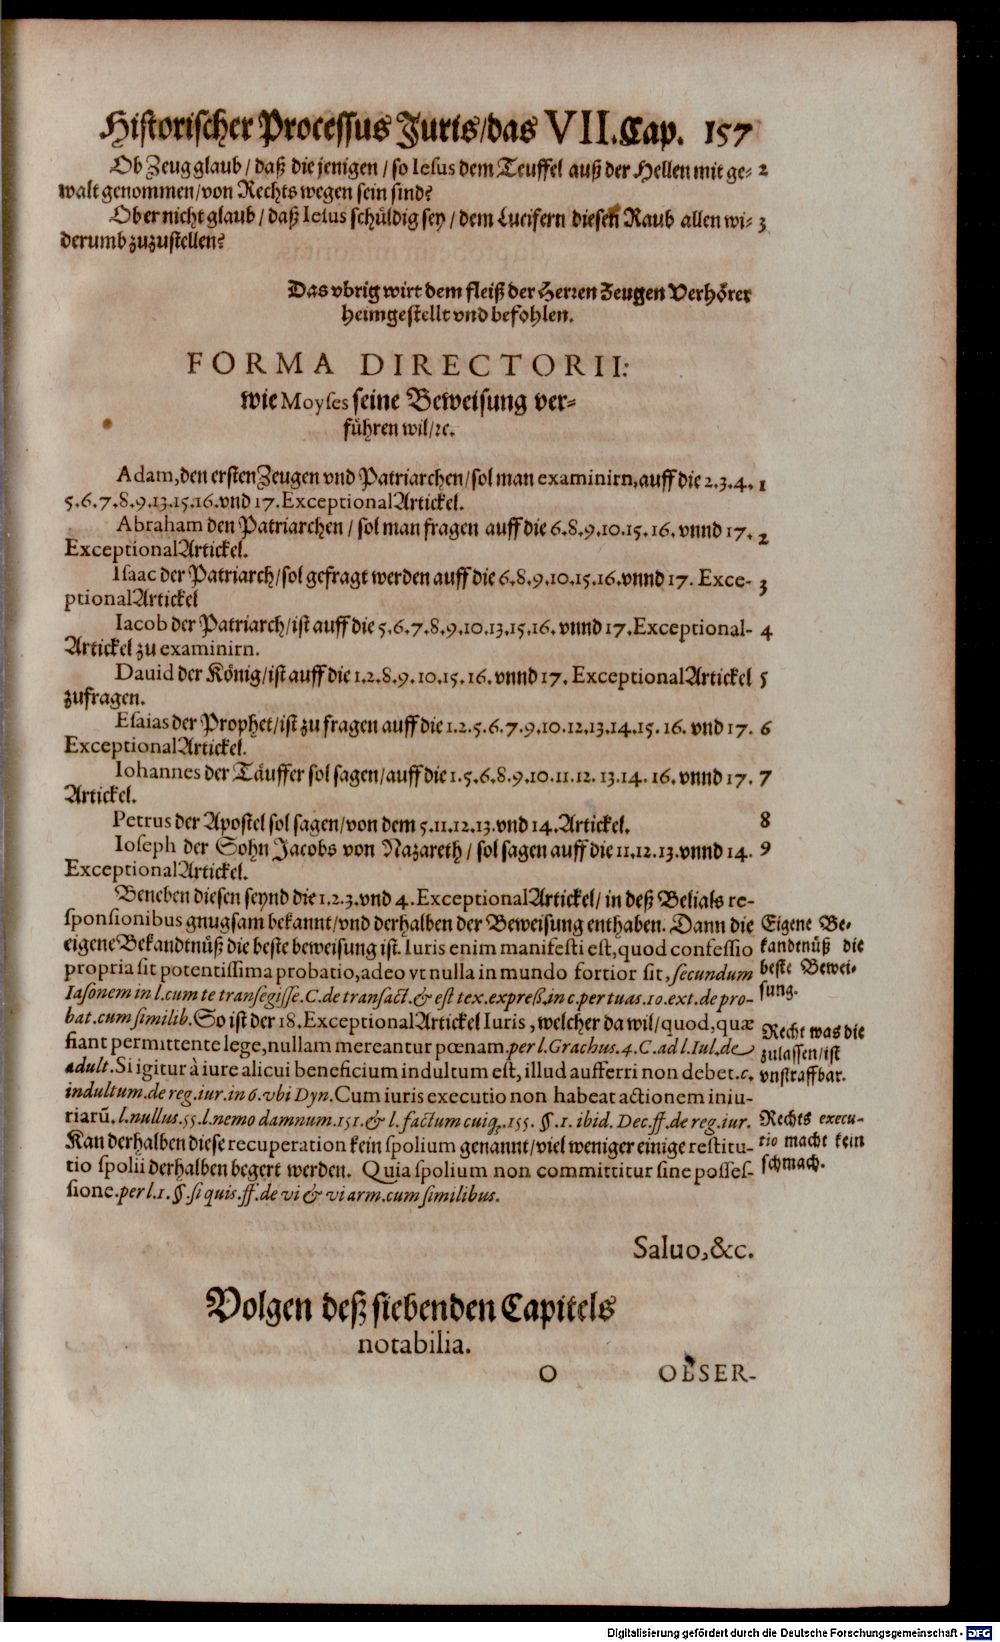 Historischer Processus Juris/das VII. Cap. 157
Ob Zeug glaub / daß die jenigen / so Iesus dem Teuffel auß der Hellen mit ge- 2
walt genommen/von Rechts wegen sein sind?
Ob er nicht glaub / daß Iesus schüldig sey / dem Lucifern diesen Raub allen wi- 3
derumb zuzustellen?
Das vbrig wirt dem fleiß der Herren Zeugen Verhörer
heimgestellt vnd befohlen.
FORMA DIRECTORII:
wie Moyses seine Beweisung ver-
führen wil/ꝛc.
Adam, den ersten Zeugen vnd Patriarchen/sol man examinirn, auff die 2.3.4. 1
5.6.7.8.9.13.15.16.vnd 17. Exceptional Artickel.
Abraham den Patriarchen / sol man fragen auff die 6.8.9.10.15.16. vnnd 17. 2
Exceptional Artickel.
Isaac der Patriarch/sol gefragt werden auff die 6.8.9.10.15.16.vnnd 17. Exce- 3
ptional Artickel
Iacob der Patriarch/ist auff die 5.6.7.8.9.10.13.15.16. vnnd 17. Exceptional- 4
Artickel zu examinirn.
Dauid der König/ist auff die 1.2.8.9.10.15.16.vnnd 17. Exceptional Artickel 5
zufragen.
Esaias der Prophet/ist zu fragen auff die 1.2.5.6.7.9.10.12.13.14.15.16. vnd 17. 6
Exceptional Artickel.
Iohannes der Täuffer sol sagen/auff die 1.5.6.8.9.10.11.12.13.14.16.vnnd 17. 7
Artickel.
Petrus der Apostel sol sagen/von dem 5.11.12.13.vnd 14. Artickel. 8
Ioseph der Sohn Jacobs von Nazareth / sol sagen auff die 11.12.13.vnnd 14. 9
Exceptional Artickel.
Beneben diesen seynd die 1.2.3.vnd 4. Exceptional Artickel/ in deß Belials re-
sponsionibus gnugsam bekannt/vnd derhalben der Beweisung enthaben. Dann die
eigene Bekandtnüß die beste beweisung ist. Iuris enim manifesti est, quod confessio
propria sit potentissima probatio, adeo vt nulla in mundo fortior sit, secundum
Iasonem in l. cum te transegisse. C. de transact. & est tex. expreß. in c. per tuas. 10. ext. de pro-
bat. cum similib. So ist der 18. Exceptional Artickel Iuris, welcher da wil/ quod, quæ
fiant permittente lege, nullam mereantur pœnam. per l. Grachus. 4. C. ad l. Iul. de
adult. Si igitur à iure alicui beneficium indultum est, illud aufferri non debet. c.
indultum. de reg. iur. in 6. vbi Dyn. Cum iuris executio non habeat actionem iniu-
riarũ. l. nullus. 55. l. nemo damnum. 151. & l. factum cuiq;. 155. §. 1. ibid. Dec. ff. de reg. iur.
Kan derhalben diese recuperation kein spolium genannt/viel weniger einige restitu-
tio spolii derhalben begert werden. Quia spolium non committitur sine posses-
sione. per l. 1. §. si quis. ff. de vi & vi arm. cum similibus.
Eigene Be-
kandtnüß die
beste Bewei-
sung.
Recht was die
zulassen/ist
vnstraffbar.
Rechts execu-
tio macht kein
schmach.
Saluo, &c.
Volgen deß siebenden Capitels
notabilia.
O OBSER-
Digitalisierung gefördert durch die Deutsche Forschungsgemeinschaft - DFG